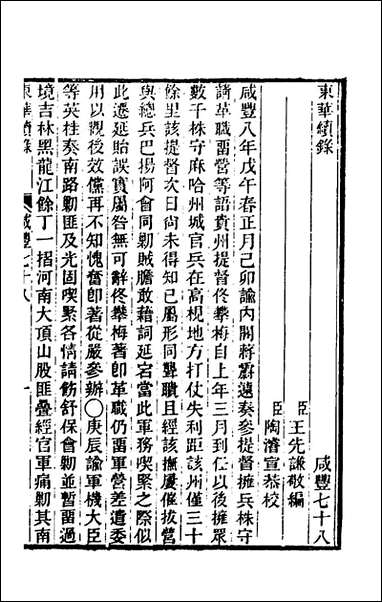 東華續錄　咸豐七十八
臣王先謙敬編
臣陶濬宣恭校
咸豐八年戊午春正月己卯諭內閣蔣霨遠奏參提督擁兵株守
請革職畱營等語貴州提督佟攀梅自上年三月到任以後擁眾
數千株守麻哈州城官兵在高枧地方打仗失利距該州僅三十
餘里該提督次日尚未得知已屬形同聾聵且經該撫屢催拔營
與總兵巴揚阿會同勦賊膽敢藉詞延宕當此軍務喫緊之際似
此遷延貽誤實屬咎無可辭佟攀梅著即革職仍畱軍營差遣委
用以觀後效儻再不知愧奮即著從嚴參辦〇庚辰諭軍機大臣
等英桂奏南路勦匪及光固喫緊各情請飭舒保會勦並暫畱過
境吉林黑龍江餘丁一摺河南大頂山股匪疊經官軍痛勦其南
東華續錄　咸豐七十八　一